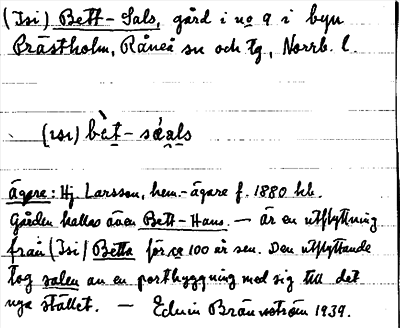 (Isi) Bett-Sals, gård i no 9 i byn
Prästholm, Råneå sn och tg, Norrb. l.
(ısı) bèt-sáals
ägare: Hj. Larsson, hem.-ägare f. 1880 hb.
Gården kallas även Bett-Hans. — är en utflyttning
från (Isi) Betta för ca 100 år sen. Den utflyttande
tog salen av en portbyggning med sig till det
nya stället. — Edvin Brännström 1939.